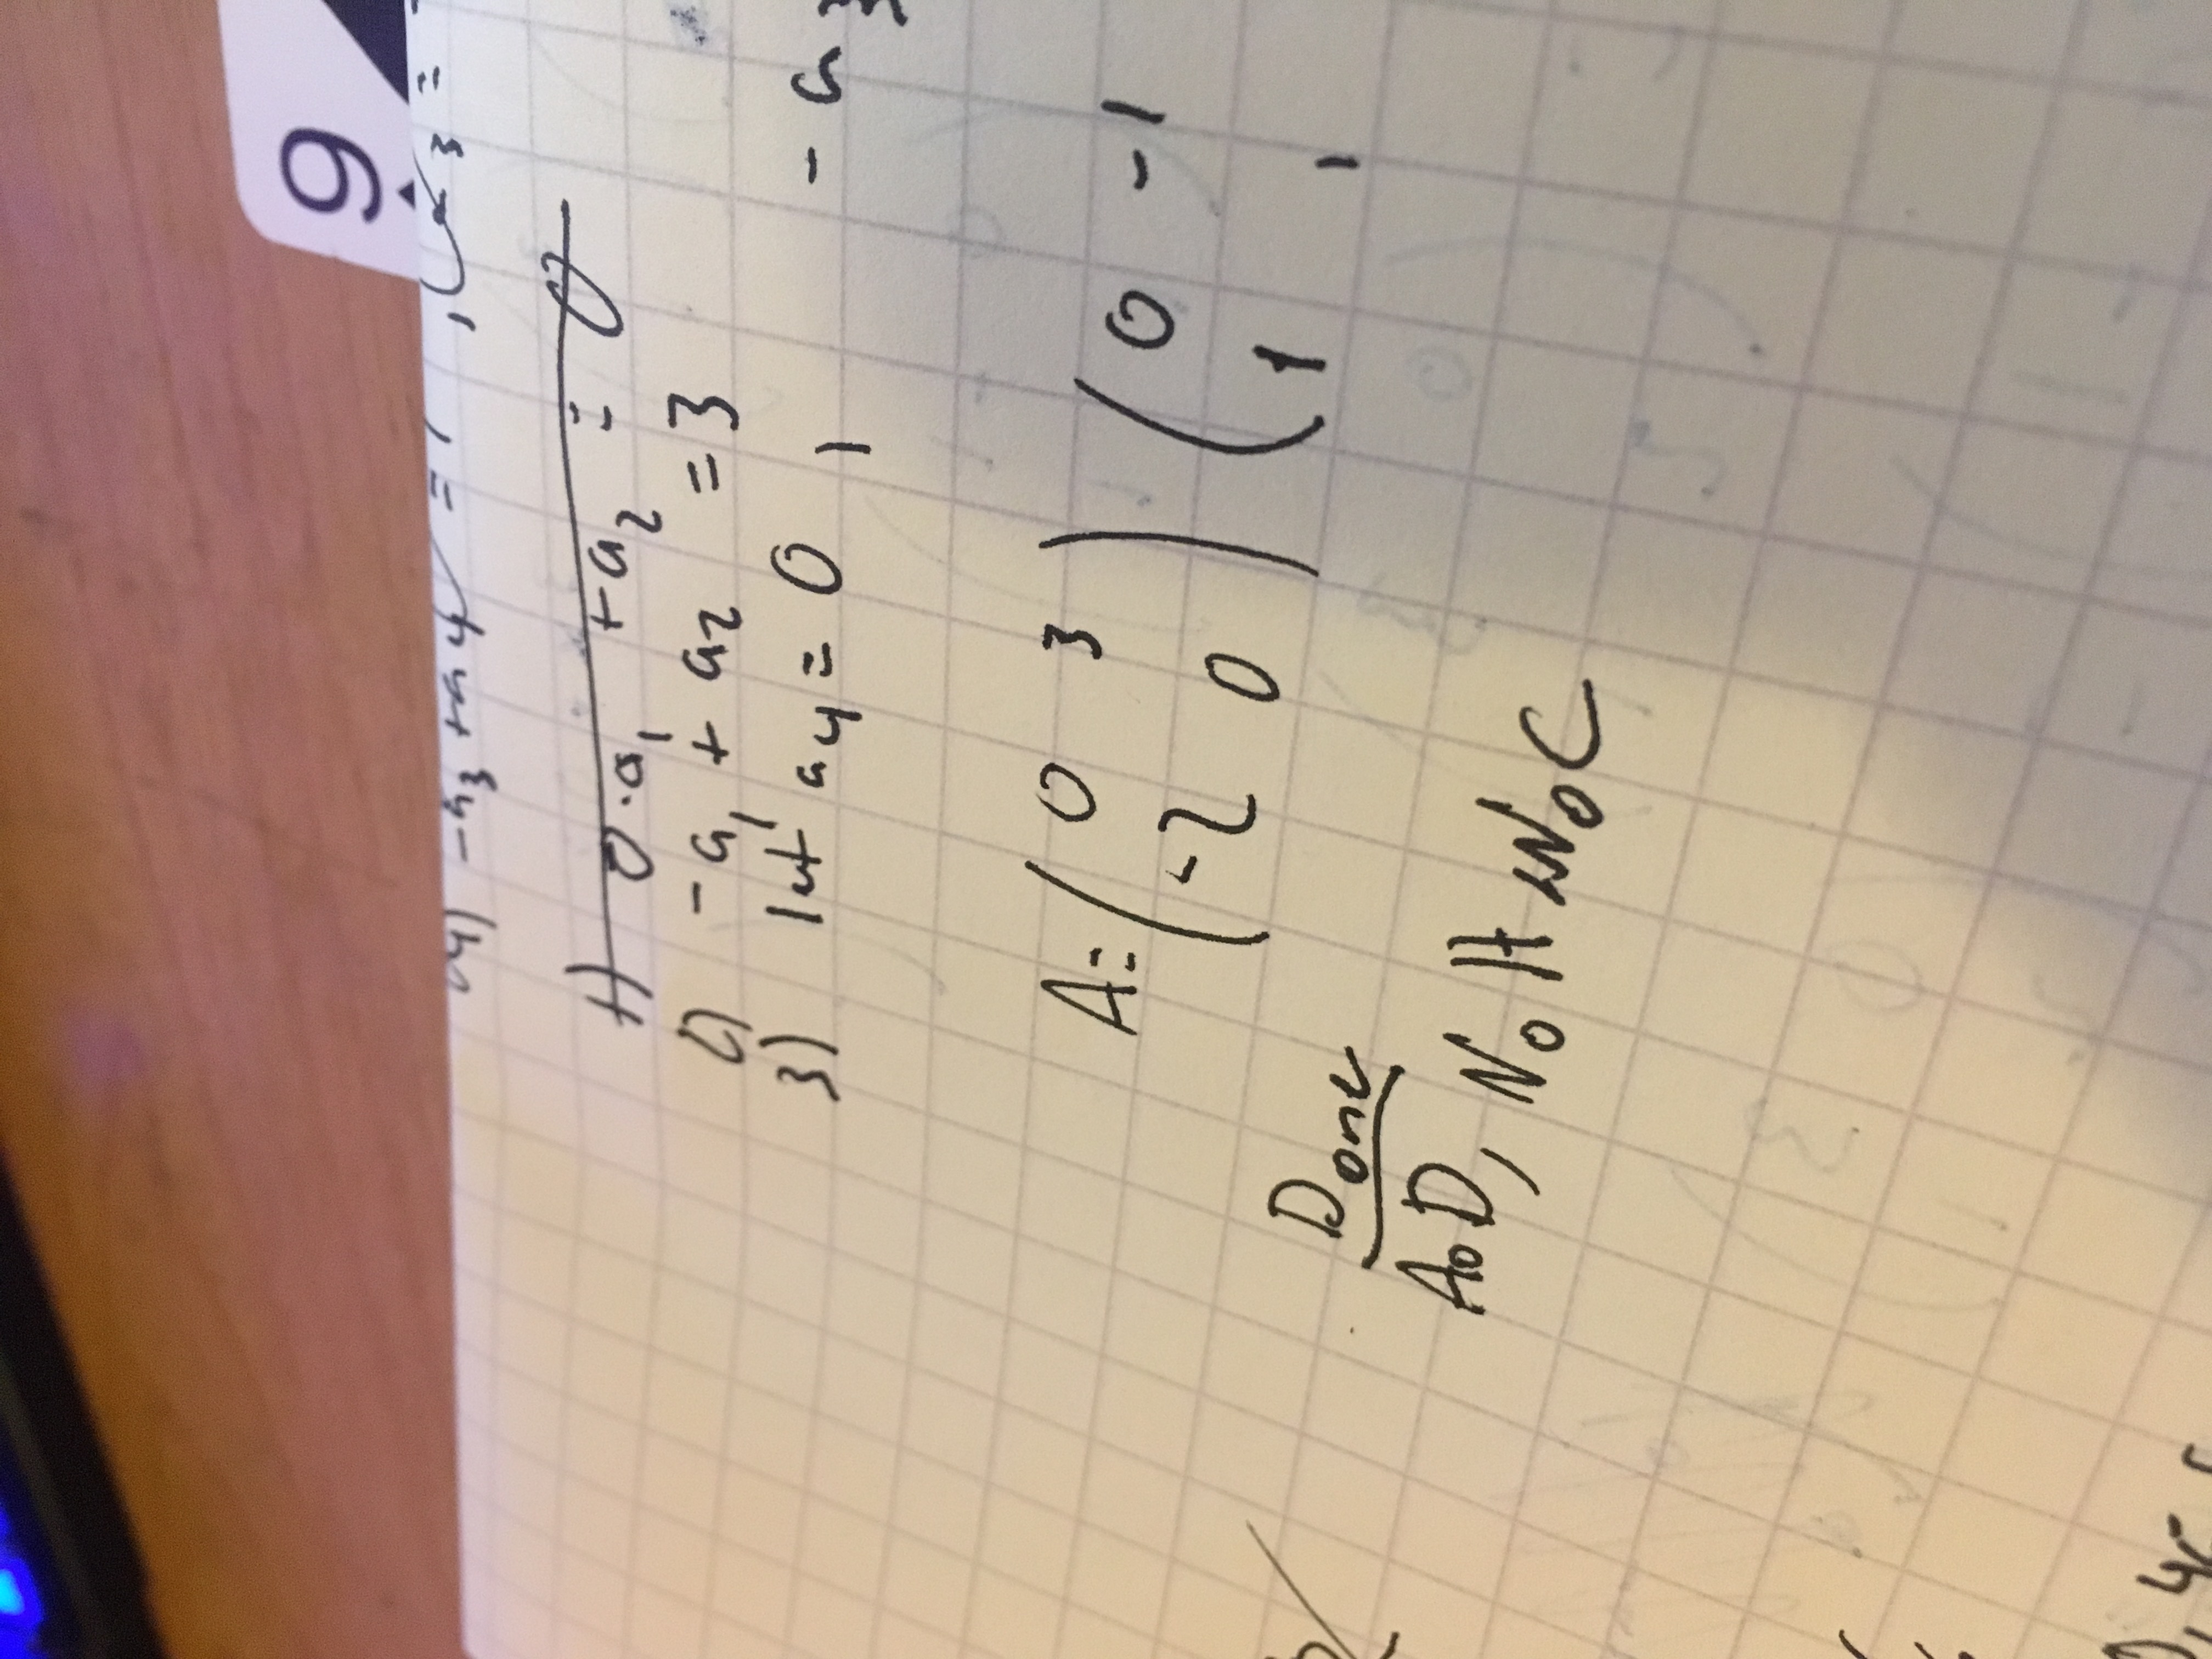 9
-a3 + a4
1) 0·a1 + a2 = 0
2) -a1 + a2 = 3
3) let a4 = 0, - a3
A= ( 0 3 ) ( 0 -1
-2 0 1 1
Done
AoD, NoH
NoC
0,45